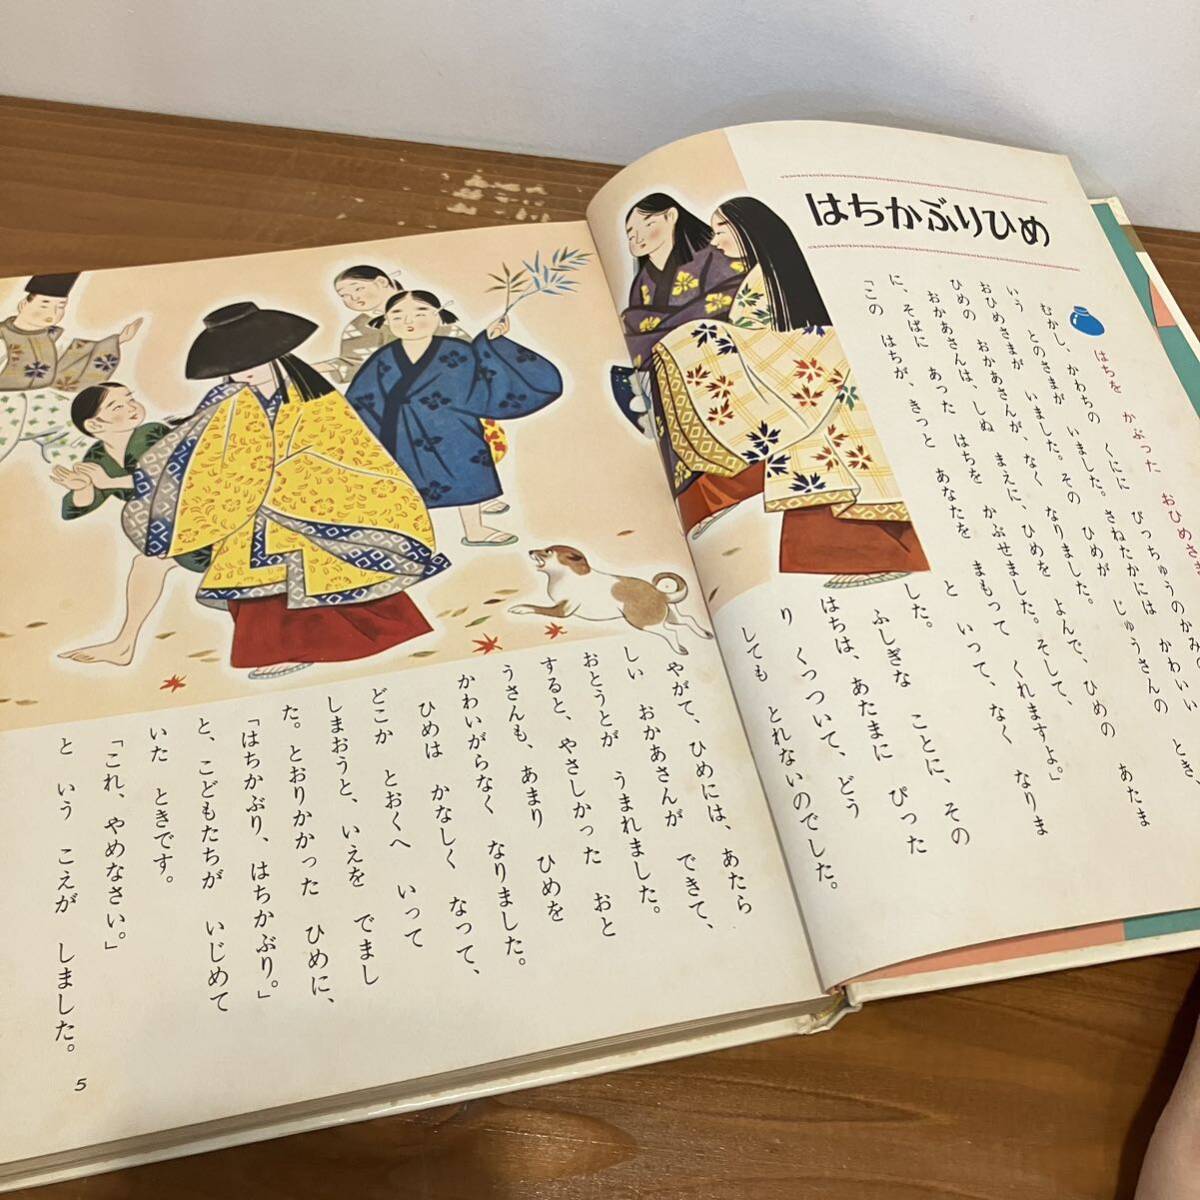 はちかぶりひめ
はちを かぶった おひめさま
むかし、かわちの くにに びっちゅうのかみ
いう とのさまが いました。さねたかには かわいい
おひめさまが いました。その ひめが じゅうさんの とき、
ひめの おかあさんが、なく なりました。
おかあさんは、しぬ まえに、ひめを よんで、ひめの あたま
に、そばに あった はちを かぶせました。そして、
「この はちが、きっと あなたを まもって くれますよ。」
と いって、なく なりま
した。
ふしぎな ことに、その
はちは、あたまに ぴった
り くっついて、どう
しても とれないのでした。
やがて、ひめには、あたら
しい おかあさんが できて、
おとうとが うまれました。
すると、やさしかった おと
うさんも、あまり ひめを
かわいがらなく なりました。
ひめは かなしく なって、
どこか とおくへ いって
しまおうと、いえを でまし
た。とおりかかった ひめに、
「はちかぶり、はちかぶり。」
と、こどもたちが いじめて
いた ときです。
「これ、やめなさい。」
と いう こえが しました。
5